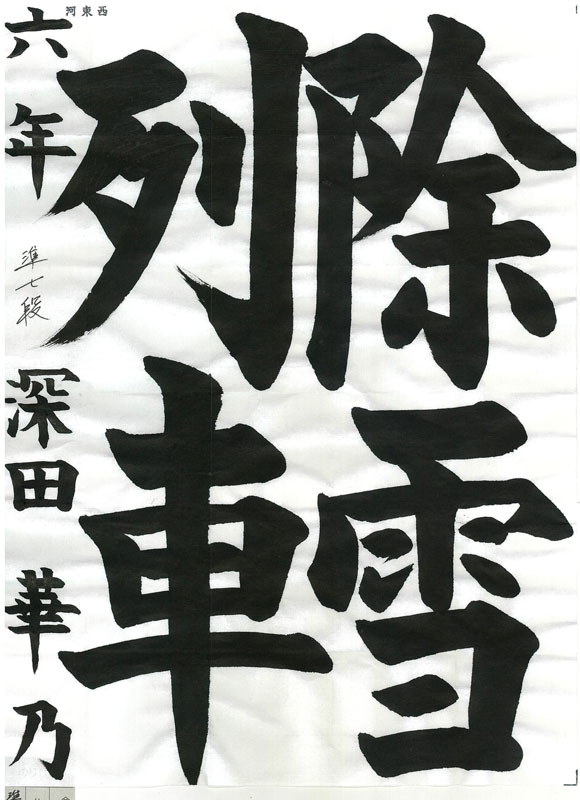 除雪
列車
六年 準七段 深田華乃
西東河